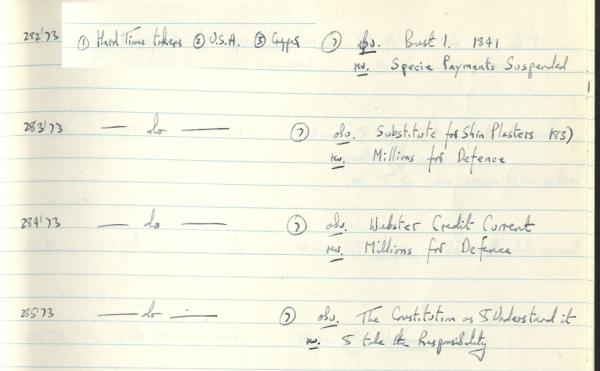 282'73 ① Hard Times tokens ② U.S.A. ③ Copper ⑦ obv. Bust l. 1841
rev. Specie Payments Suspended
283'73 — do — ⑦ obv. Substitute for Shin Plasters 1837
rev. Millions for Defence
284'73 — do — ⑦ obv. Webster Credit Current
rev. Millions for Defence
285'73 — do — ⑦ obv. The Constitution as I Understand it
rev. I take the Responsibility